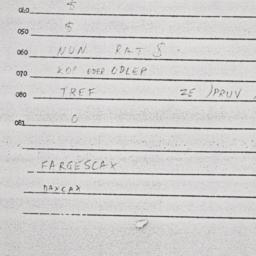 040 5
050 5
060 NUN RAT S
070 KOP ODER ODLEP
080 TREF ZE PRUV
081 0
FARGESCAX
DAXCAX